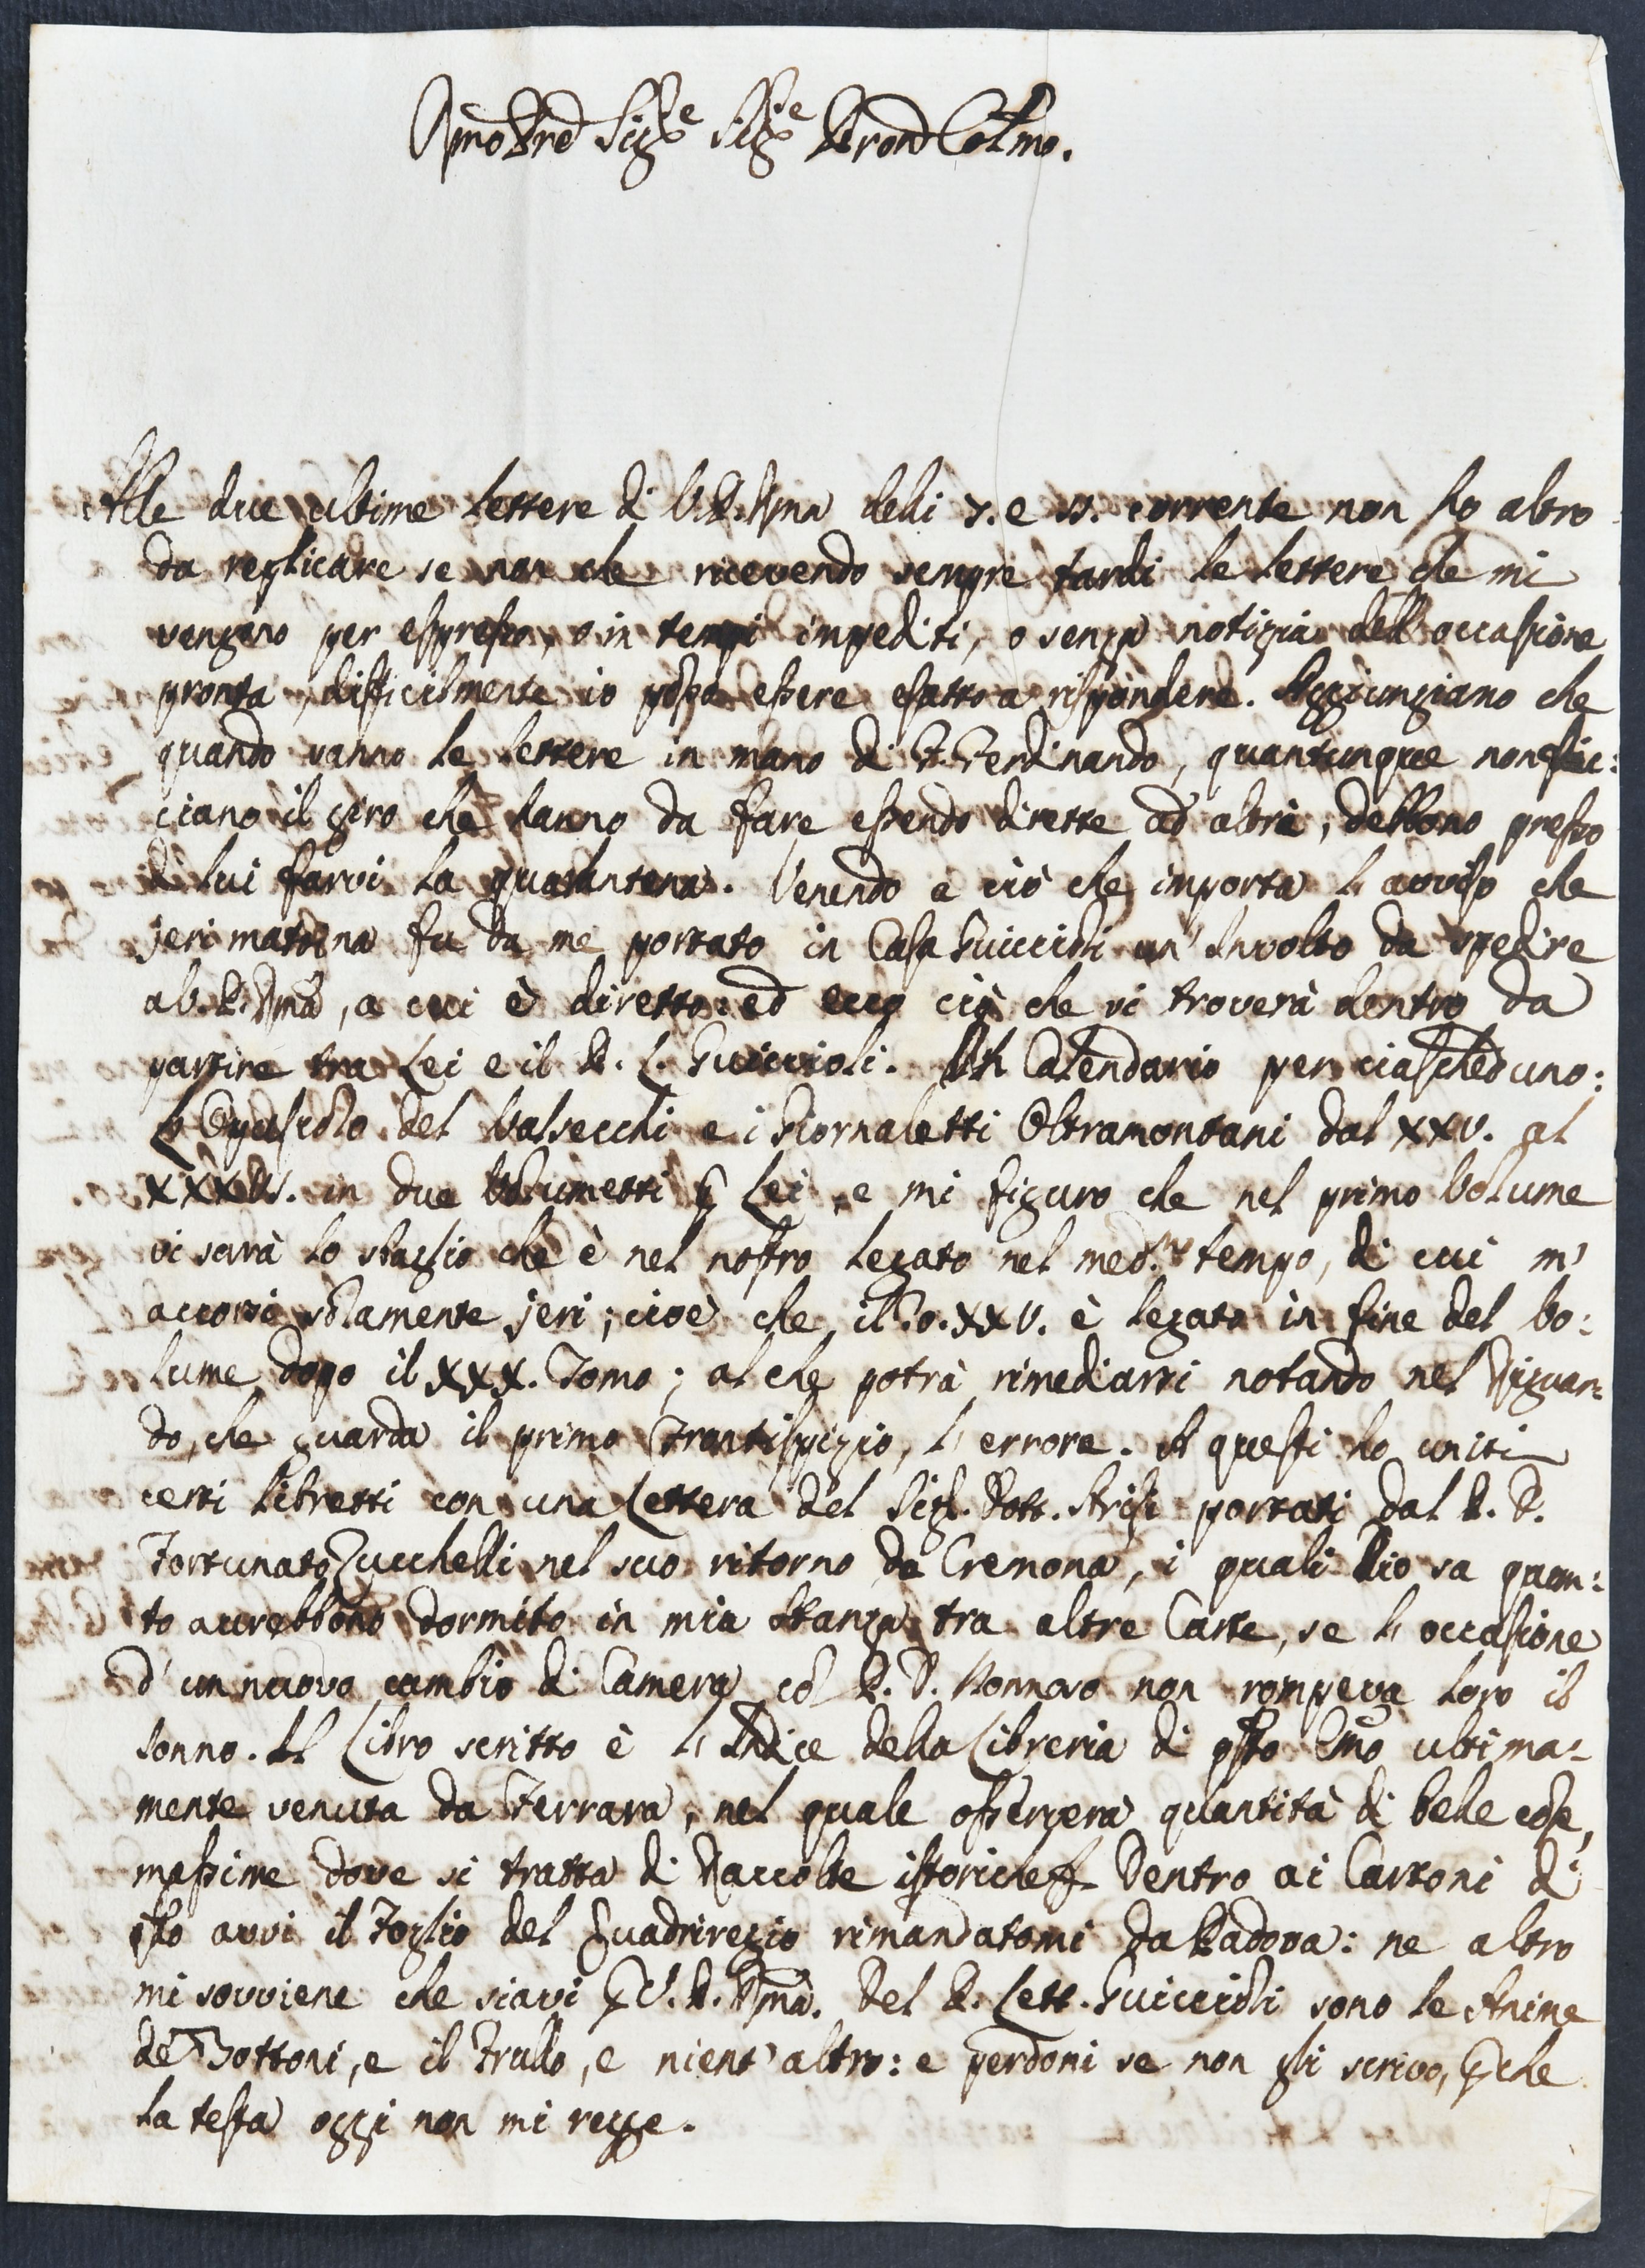 Rmo Pre Sigre Sigre Pron Colmo.
Alle due ultime lettere di V. P. Rma delli 7. e 11. corrente non ho altro
da replicare se non che ricevendo sempre tardi le lettere che mi
vengano per espresso, o in tempi impediti, o senza notizia dell'occasione
pronta, difficilmente io possa essere esatto a rispondere. Aggiungiamo che
quando vanno le lettere in mano di P. Ferdinando, quantunque non fac:
ciano il giro che hanno da fare essendo dirette ad altri, debbono presso
di lui farvi la quarantena. Venendo a ciò che importa l'avviso che
jeri mattina fu da me portato in Casa Guiccioli un' Involto da spedire
a V. P. Rma, a cui è diretto: ed ecco ciò che vi troverà dentro da
partire tra Lei e il P. L. Guiccioli. Un Calendario per ciascheduno:
L'Opuscolo del Valsecchi e i Giornaletti Oltramontani dal XXV. al
in due Volumetti p Lei, e mi figuro che nel primo Volume
vi sarà lo sbaglio che è nel nostro legato nel med.mo tempo, di cui m'
accorsi solamente jeri; cioè che il To. XXV. è legato in fine del Vo:
lume dopo il XXX. Tomo; al che potrà rimediarsi notando nel Riguar:
do, che guarda il primo Frontispizio, l'errore. A questi ho uniti
certi libretti con una Lettera del Sigr. Dott. Arisi portati dal P. D.
Fortunato Zucchelli nel suo ritorno da Cremona, i quali Dio sa quan:
to averebbono dormito in mia Stanza tra altre Carte, se l'occasione
d'un nuovo cambio di Camera col P. D. non rompeva loro il
sonno. Il Libro scritto è l'Indice della Libreria di qsto Emo ultima:
mente venuta da Ferrara, nel quale osserverà quantità di belle cose,
massime dove si tratta di Raccolte istoriche. Dentro ai Cartoni di
qsto avvi il Foglio del Quadriregio rimandatomi da Padova: ne altro
mi sovviene che siavi p V. P. Rma. Del P. Lett. Guiccioli sono le Anime
de Bottoni, e il Trullo, e nient'altro: e perdoni se non gli scrivo, pche
la testa oggi non mi regge.